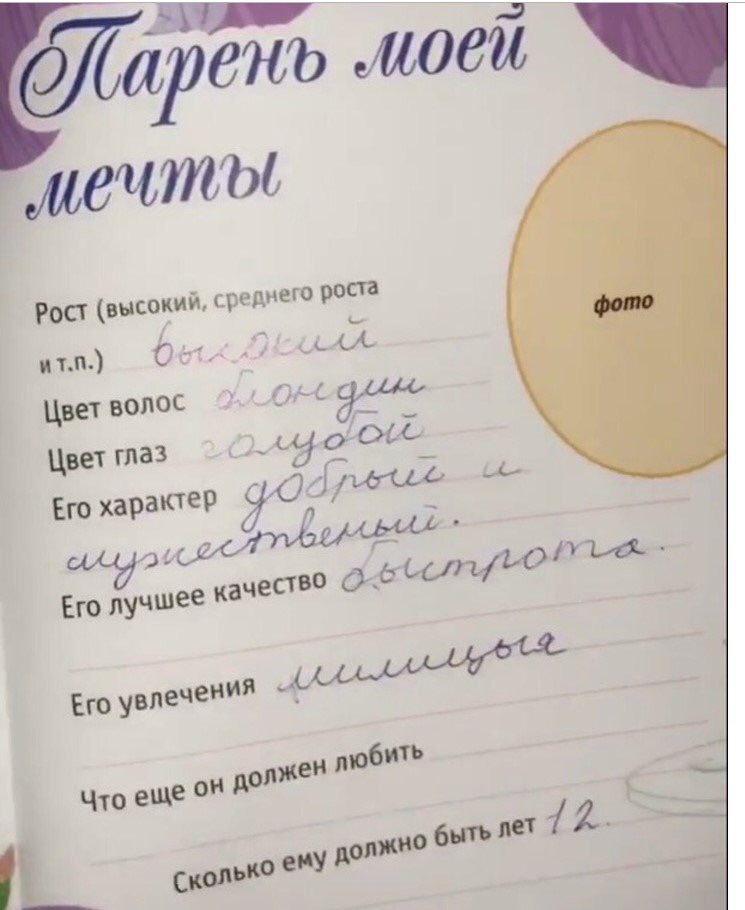 Парень моей
мечты
фото
Рост (высокий, среднего роста
и т.п.) высокий
Цвет волос блондин
Цвет глаз голубой
Его характер добрый и
мужественый.
Его лучшее качество быстрота.
Его увлечения милицыя
Что еще он должен любить
Сколько ему должно быть лет 12.